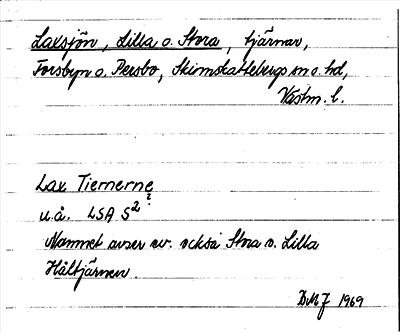 Laxsjön, Lilla o. Stora, tjärnar,
Forsbyn o. Persbo, Skinnskattebergs sn o. hd,
Västm. l.
Lax Tiernerne
u.å. LSA S2 ?
Namnet avser ev. också Stora o. Lilla
Håltjärnen
DMJ 1969